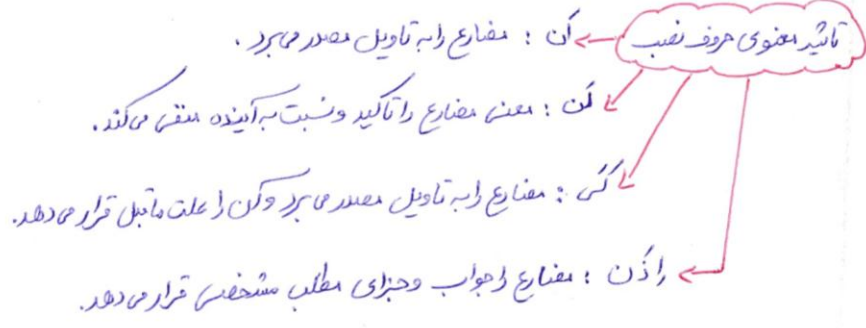 تاثیر معنوی حروف نصب
أن : مضارع را به تاویل مصدر می‌برد .
لَن : معنی مضارع را تاکید و نسبت به آینده منفی می‌کند .
کَی : مضارع را به تاویل مصدر می‌برد و آن را علت ماقبل قرار می‌دهد .
إذَن : مضارع را جواب و جزای مطلب مشخصی قرار می‌دهد .